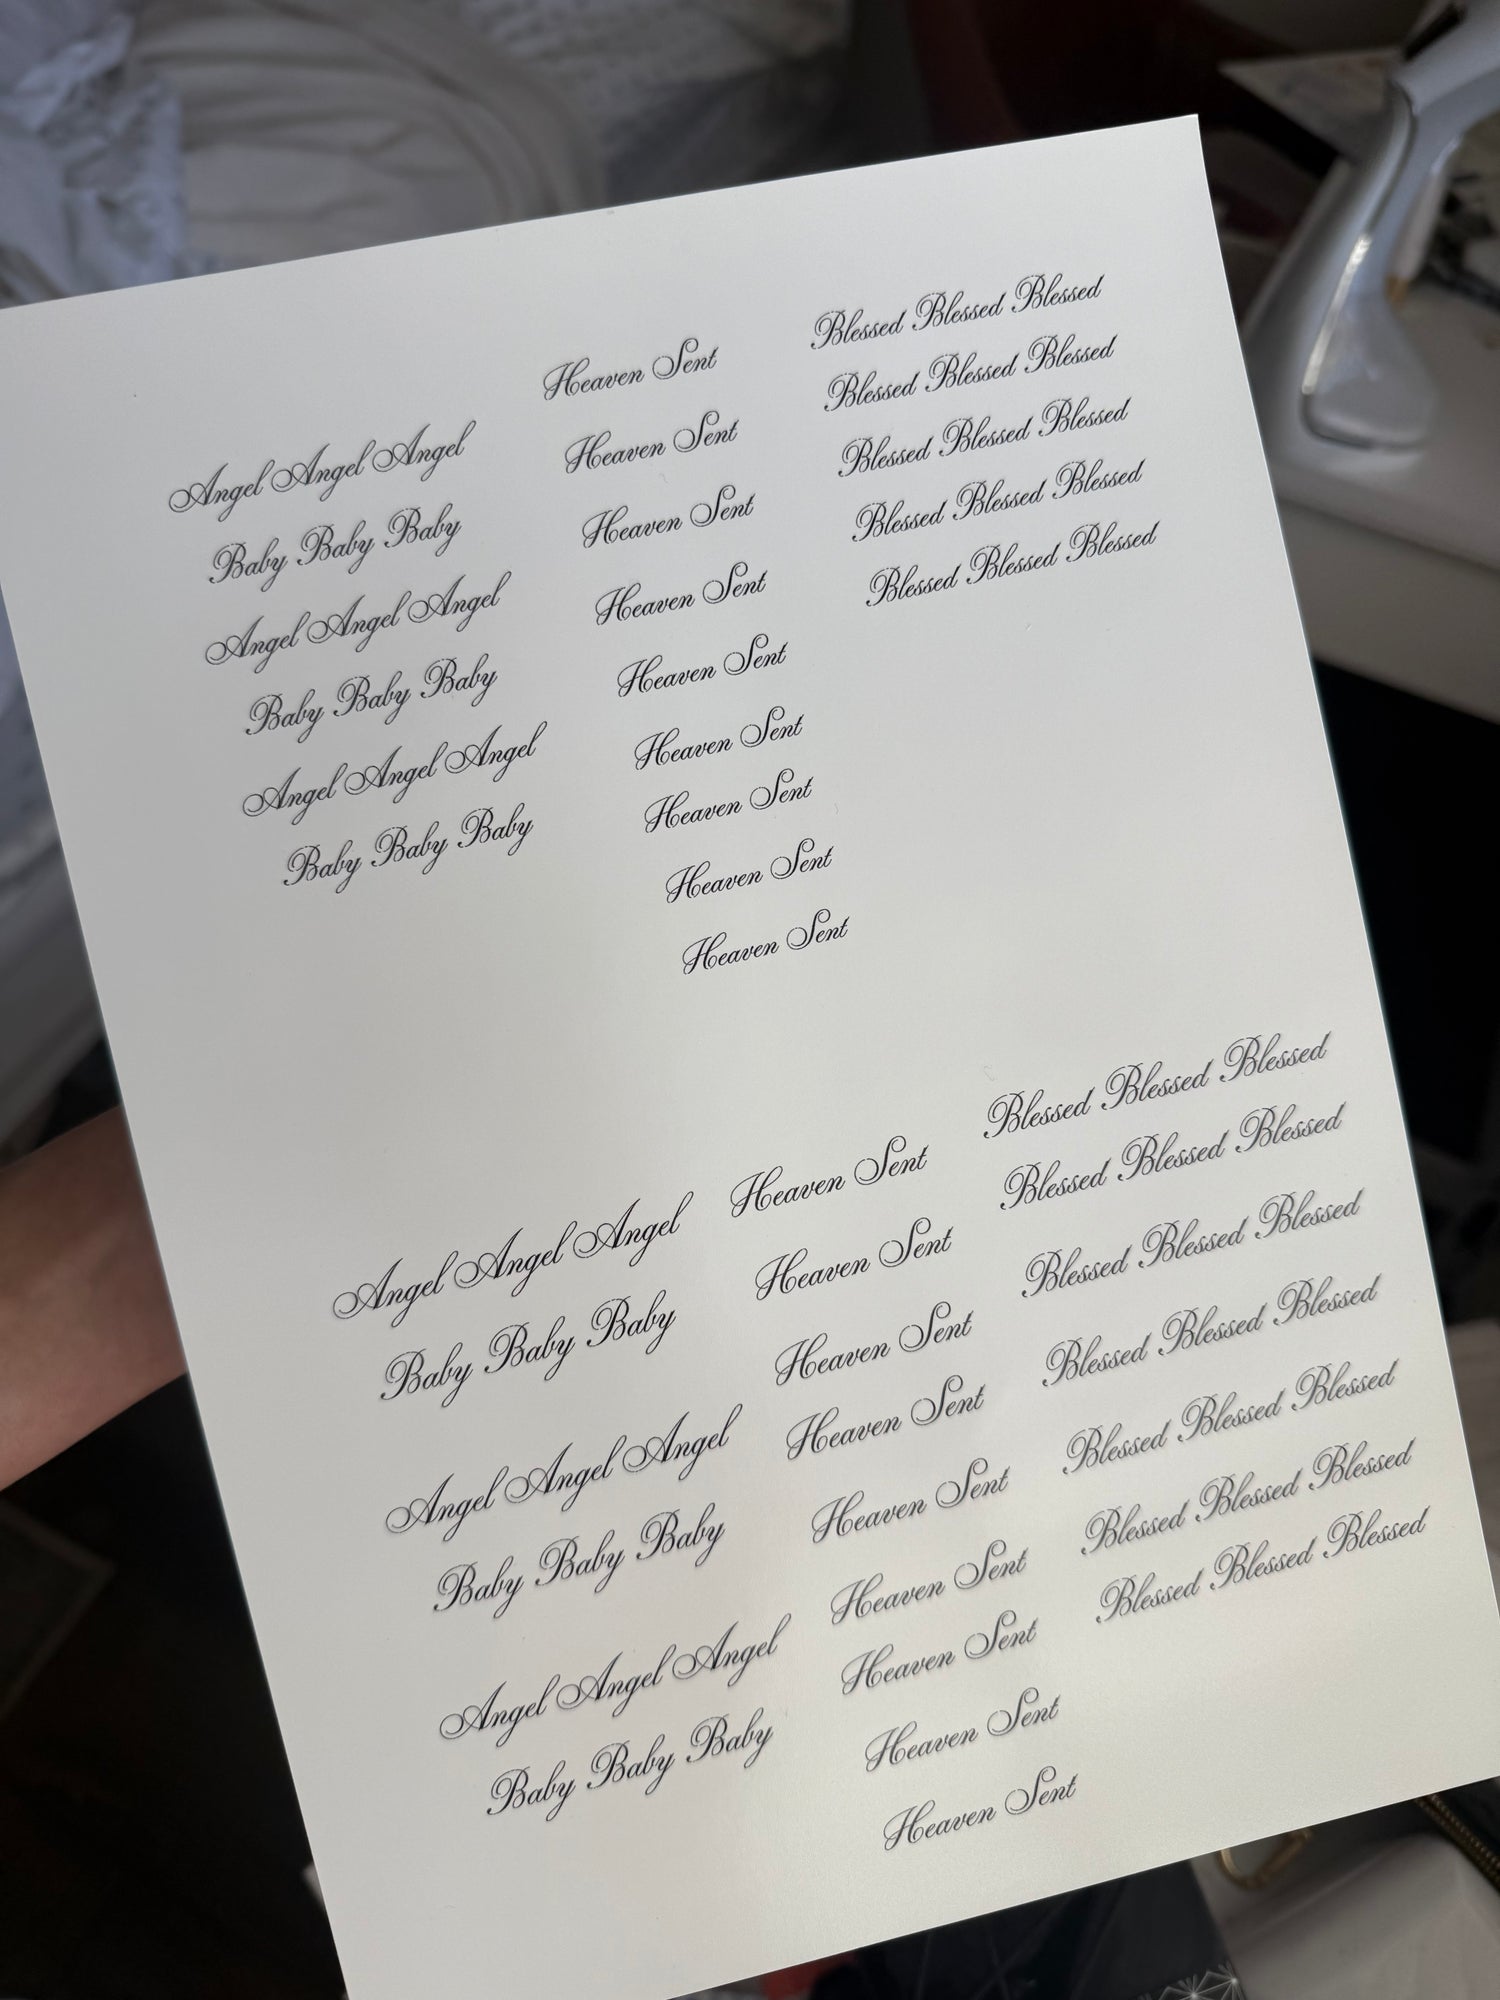 Angel Angel Angel
Baby Baby Baby
Angel Angel Angel
Baby Baby Baby
Angel Angel Angel
Baby Baby Baby
Heaven Sent
Heaven Sent
Heaven Sent
Heaven Sent
Heaven Sent
Heaven Sent
Heaven Sent
Heaven Sent
Heaven Sent
Blessed Blessed Blessed
Blessed Blessed Blessed
Blessed Blessed Blessed
Blessed Blessed Blessed
Blessed Blessed Blessed
Angel Angel Angel
Baby Baby Baby
Angel Angel Angel
Baby Baby Baby
Angel Angel Angel
Baby Baby Baby
Heaven Sent
Heaven Sent
Heaven Sent
Heaven Sent
Heaven Sent
Heaven Sent
Heaven Sent
Heaven Sent
Heaven Sent
Blessed Blessed Blessed
Blessed Blessed Blessed
Blessed Blessed Blessed
Blessed Blessed Blessed
Blessed Blessed Blessed
Blessed Blessed Blessed
Blessed Blessed Blessed